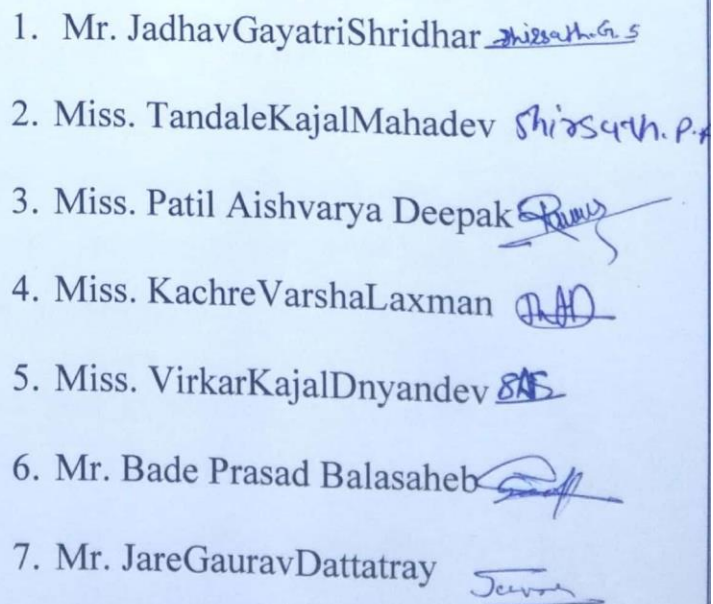 1. Mr. JadhavGayatriShridhar Shirsath.G.S
2. Miss. TandaleKajalMahadev Shirsath. P.A
3. Miss. Patil Aishvarya Deepak
4. Miss. KachreVarshaLaxman
5. Miss. VirkarKajalDnyandev
6. Mr. Bade Prasad Balasaheb
7. Mr. JareGauravDattatray